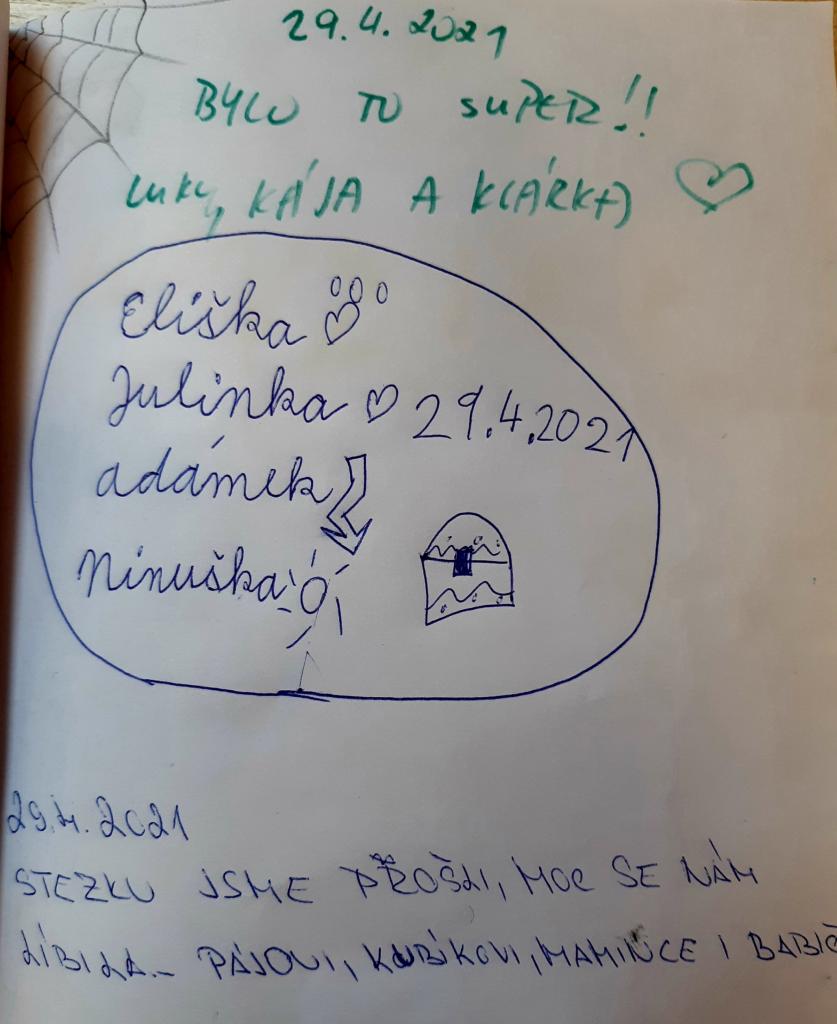 29.4.2021
BYLO TO SUPER!!
LUKY, KÁJA A KLÁRKA
Eliška
Julinka 29.4.2021
adámek
Ninuška
29.4.2021
STEZKU JSME PROŠLI, MOC SE NÁM
LÍBILA - PÁJOVI, KUBÍKOVI, MAMINCE I BABIČ